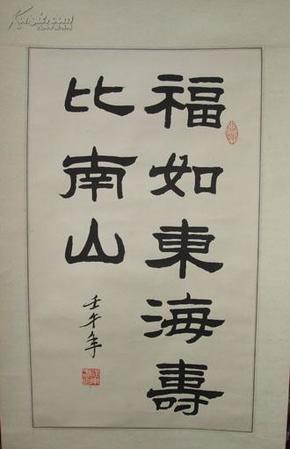 福如東海壽
比南山
壬午年